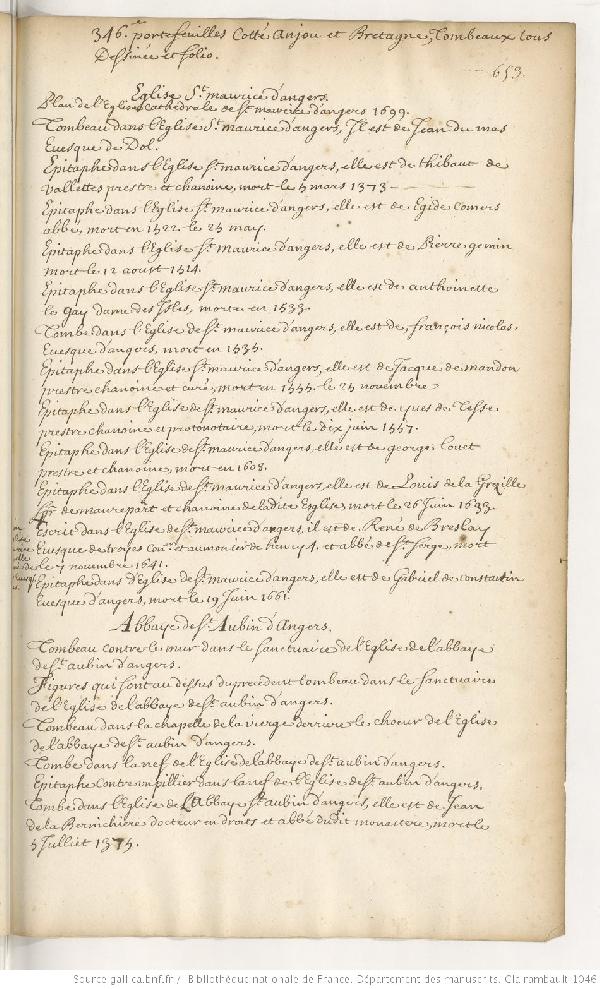 346.e portefeuilles Cotté Anjou et Bretagne, Tombeaux tous
Dessinée et folio.
653.
Eglise St. maurice d'angers.
Plan de l'Eglise Cathedrale de St. maurice d'angers 1699.
Tombeau dans l'Eglise St. maurice d'angers, Il est de Jean du mas
Euesque de Dol.
Epitaphe dans l'Eglise St. maurice d'angers, elle est de thibaut de
Vallettes prestre et chanoine, mort le 5 mars 1373
Epitaphe dans l'Eglise St. maurice d'angers, elle est de Egide Comers
abbé, mort en 1522. le 25 may.
Epitaphe dans l'Eglise St. maurice d'angers, elle est de Pierre gemin
mort le 12 aoust 1524.
Epitaphe dans l'Eglise St. maurice d'angers, elle est de anthoinette
le Gay dame des Isles, morte en 1533.
Tombe dans l'Eglise de St. maurice d'angers, elle est de, françois nicolas,
Euesque d'angers, mort en 1535.
Epitaphe dans l'Eglise St. maurice d'angers, elle est de Jacque de mandon
prestre chanoine et curé, mort en 1555. le 25 nouembre
Epitaphe dans l'Eglise de St. maurice d'angers, elle est de yues de Tesse
prestre chanoine et protonotaire, mort le dix juin 1557.
Epitaphe dans l'Eglise de St. maurice d'angers, elle est de george Louet
prestre et chanoine, mort en 1608.
Epitaphe dans l'Eglise de St. maurice d'angers, elle est de Louis de la Grezille
Sgr. de maurepart et chanoine de ladite Eglise, mort le 26 Juin 1633.
Escrit dans l'Eglise de St. maurice d'angers, il est de René de Breslay
Euesque de troyes Conr. et aumonier de henry 4. et abbé de St. Serge, mort
le 7 nouembre 1641.
Epitaphe dans l'Eglise de St. maurice d'angers, elle est de Gabriel de constantin
Euesque d'angers, mort le 19 Juin 1661.
Abbaye de St. Aubin d'Angers.
Tombeau contre le mur dans le sanctuaire de l'Eglise de l'abbaye
de St. aubin d'angers.
Figures qui sont au dessus du precedent tombeau dans le sanctuaire
de l'Eglise de l'abbaye de St. aubin d'angers.
Tombeau dans la chapelle de la vierge derriere le choeur de l'Eglise
de l'abbaye de St. aubin d'angers.
Tombe dans la nef de l'Eglise de l'abbaye de St. aubin d'angers.
Epitaphe contre un pillier dans la nef de l'Eglise de St. aubin d'angers.
Tombe dans l'Eglise de l'Abbaye St. aubin d'angers, elle est de Jean
de la Bernichere docteur en droits et abbé dudit monastere, mort le
5 Julliet 1375.
Source gallica.bnf.fr / Bibliothèque nationale de France. Département des manuscrits. Clairambault 1046